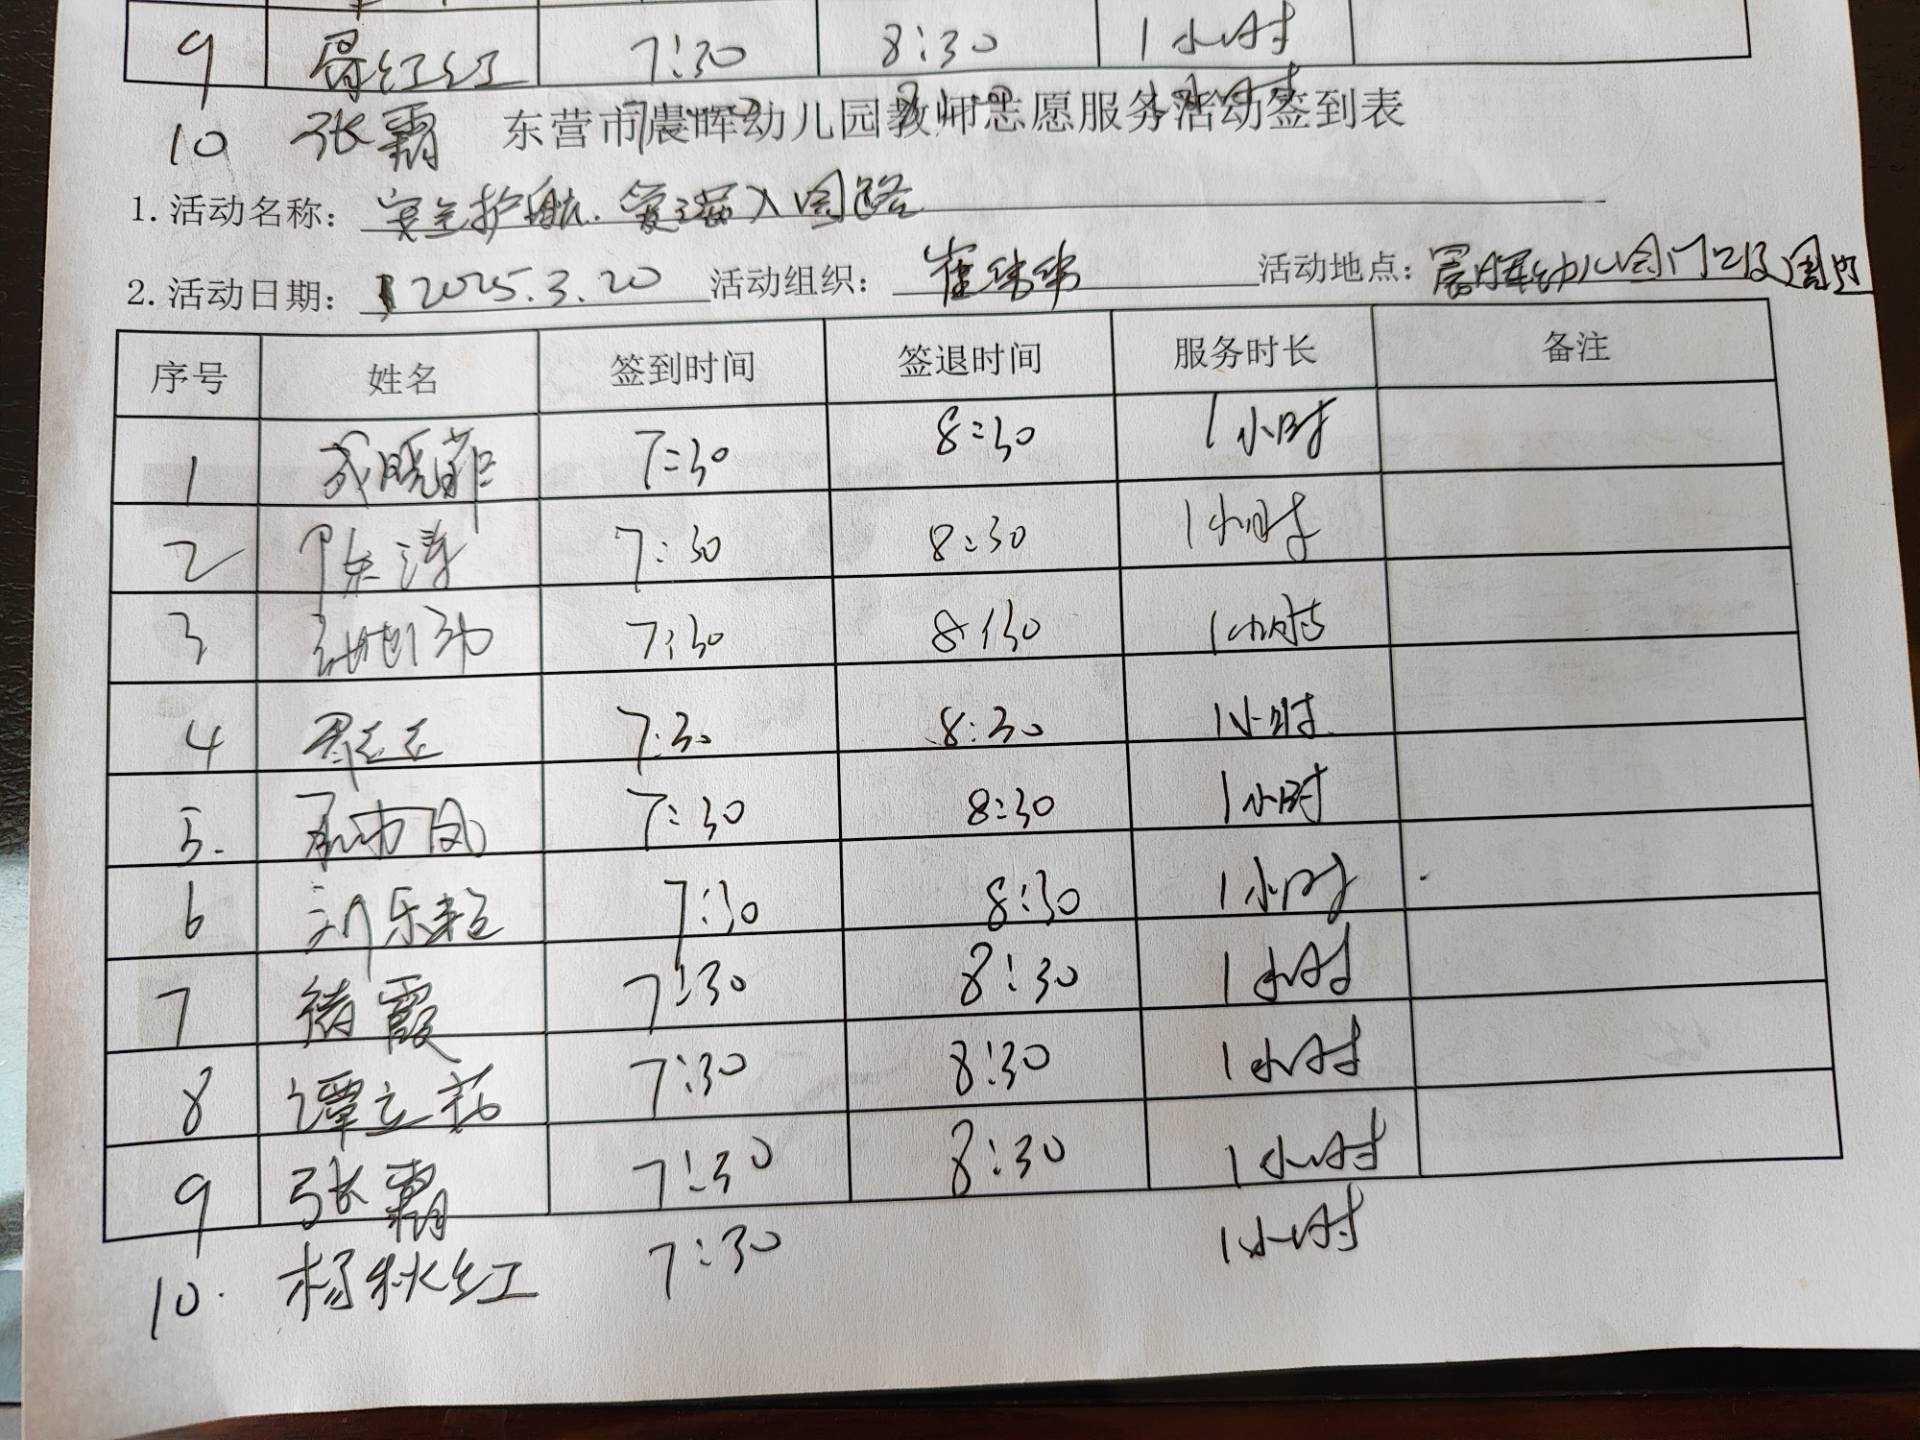 9 红红 7:30 8:30 1小时
10 张霜
东营市晨晖幼儿园教师志愿服务活动签到表
1.活动名称: 安全护航.爱满入园路
2.活动日期: 2025.3.20 活动组织: 崔纬纬 活动地点: 晨晖幼儿园门口及周边
序号 姓名 签到时间 签退时间 服务时长 备注
1 成晓菲 7:30 8:30 1小时
2 陈涛 7:30 8:30 1小时
3 7:30 8:30 1小时
4 7:30 8:30 1小时
5. 7:30 8:30 1小时
6 刘乐 7:30 8:30 1小时
7 褚霞 7:30 8:30 1小时
8 谭立 7:30 8:30 1小时
9 张霜 7:30 8:30 1小时
10. 杨秋红 7:30 1小时